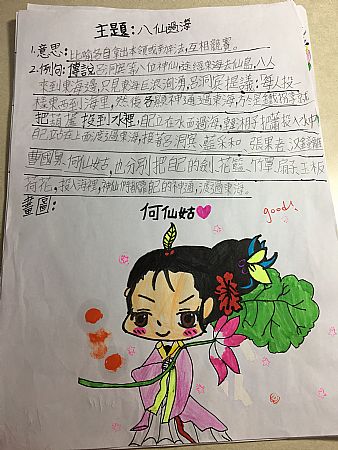 主題:八仙過海
1.意思:比喻各自拿出本領或辦法,互相競賽。
2.例句:傳說呂洞賓等八位神仙途經東海去仙島,八人
來到東海邊,只見東海巨浪洶湧,呂洞賓提議:每人投
樣東西到海里,然後各顯神通過東海,於是鐵拐李就
把葫蘆投到水裡,自己立在水面過海,韓湘子把簫投入水中
自己立站在上面渡過東海,接著呂洞賓、藍采和、張果老、漢鍾離
曹國舅、何仙姑,也分別把自己的劍、花籃、竹罩、扇子、玉板
荷花,投入海裡,神仙們都靠自己的神通,渡過東海。
畫圖:
何仙姑
good!